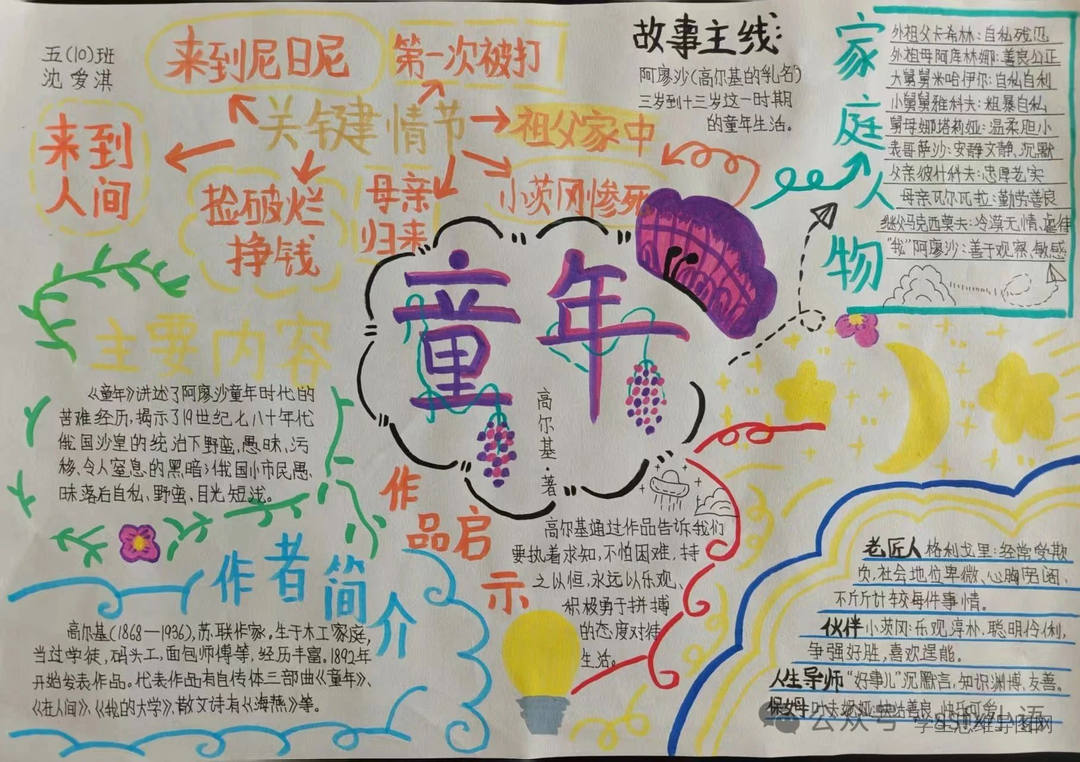 五(10)班
沈爱淇
来到尼日尼
第一次被打
关键情节
祖父家中
来到
人间
捡破烂
挣钱
母亲
归来
小茨冈惨死
故事主线:
阿廖沙(高尔基的乳名)
三岁到十三岁这一时期
的童年生活。
家庭人物
外祖父卡希林:自私残忍
外祖母阿库林娜:善良公正
大舅舅米哈伊尔:自私自利
小舅舅雅科夫:粗暴自私
舅母娜塔莉娅:温柔胆小
表哥萨沙:安静文静、沉默
父亲彼什科夫:忠厚老实
母亲瓦尔瓦拉:勤劳善良
继父马克西莫夫:冷漠无情、虐待
“我”阿廖沙:善于观察、敏感
童年
高尔基·著
主要内容
《童年》讲述了阿廖沙童年时代的
苦难经历,揭示了19世纪七八十年代
俄国沙皇的统治下野蛮,愚昧,污
秽、令人窒息的黑暗;俄国小市民愚
昧落后自私、野蛮、目光短浅。
作者简介
高尔基(1868—1936),苏联作家。生于木工家庭,
当过学徒,码头工,面包师傅等,经历丰富。1892年
开始发表作品。代表作品有自传体三部曲《童年》、
《在人间》、《我的大学》、散文诗有《海燕》等。
作品启示
高尔基通过作品告诉我们
要执着求知,不怕困难,持
之以恒,永远以乐观、
积极勇于拼搏
的态度对待
生活。
老匠人格利戈里:经常受欺
负,社会地位卑微、心胸宽阔、
不斤斤计较每件事情。
伙伴小茨冈:乐观淳朴、聪明伶俐,
争强好胜,喜欢逞能。
人生导师“好事儿”沉默言,知识渊博、友善。
保姆
公众号
学生思维导图网